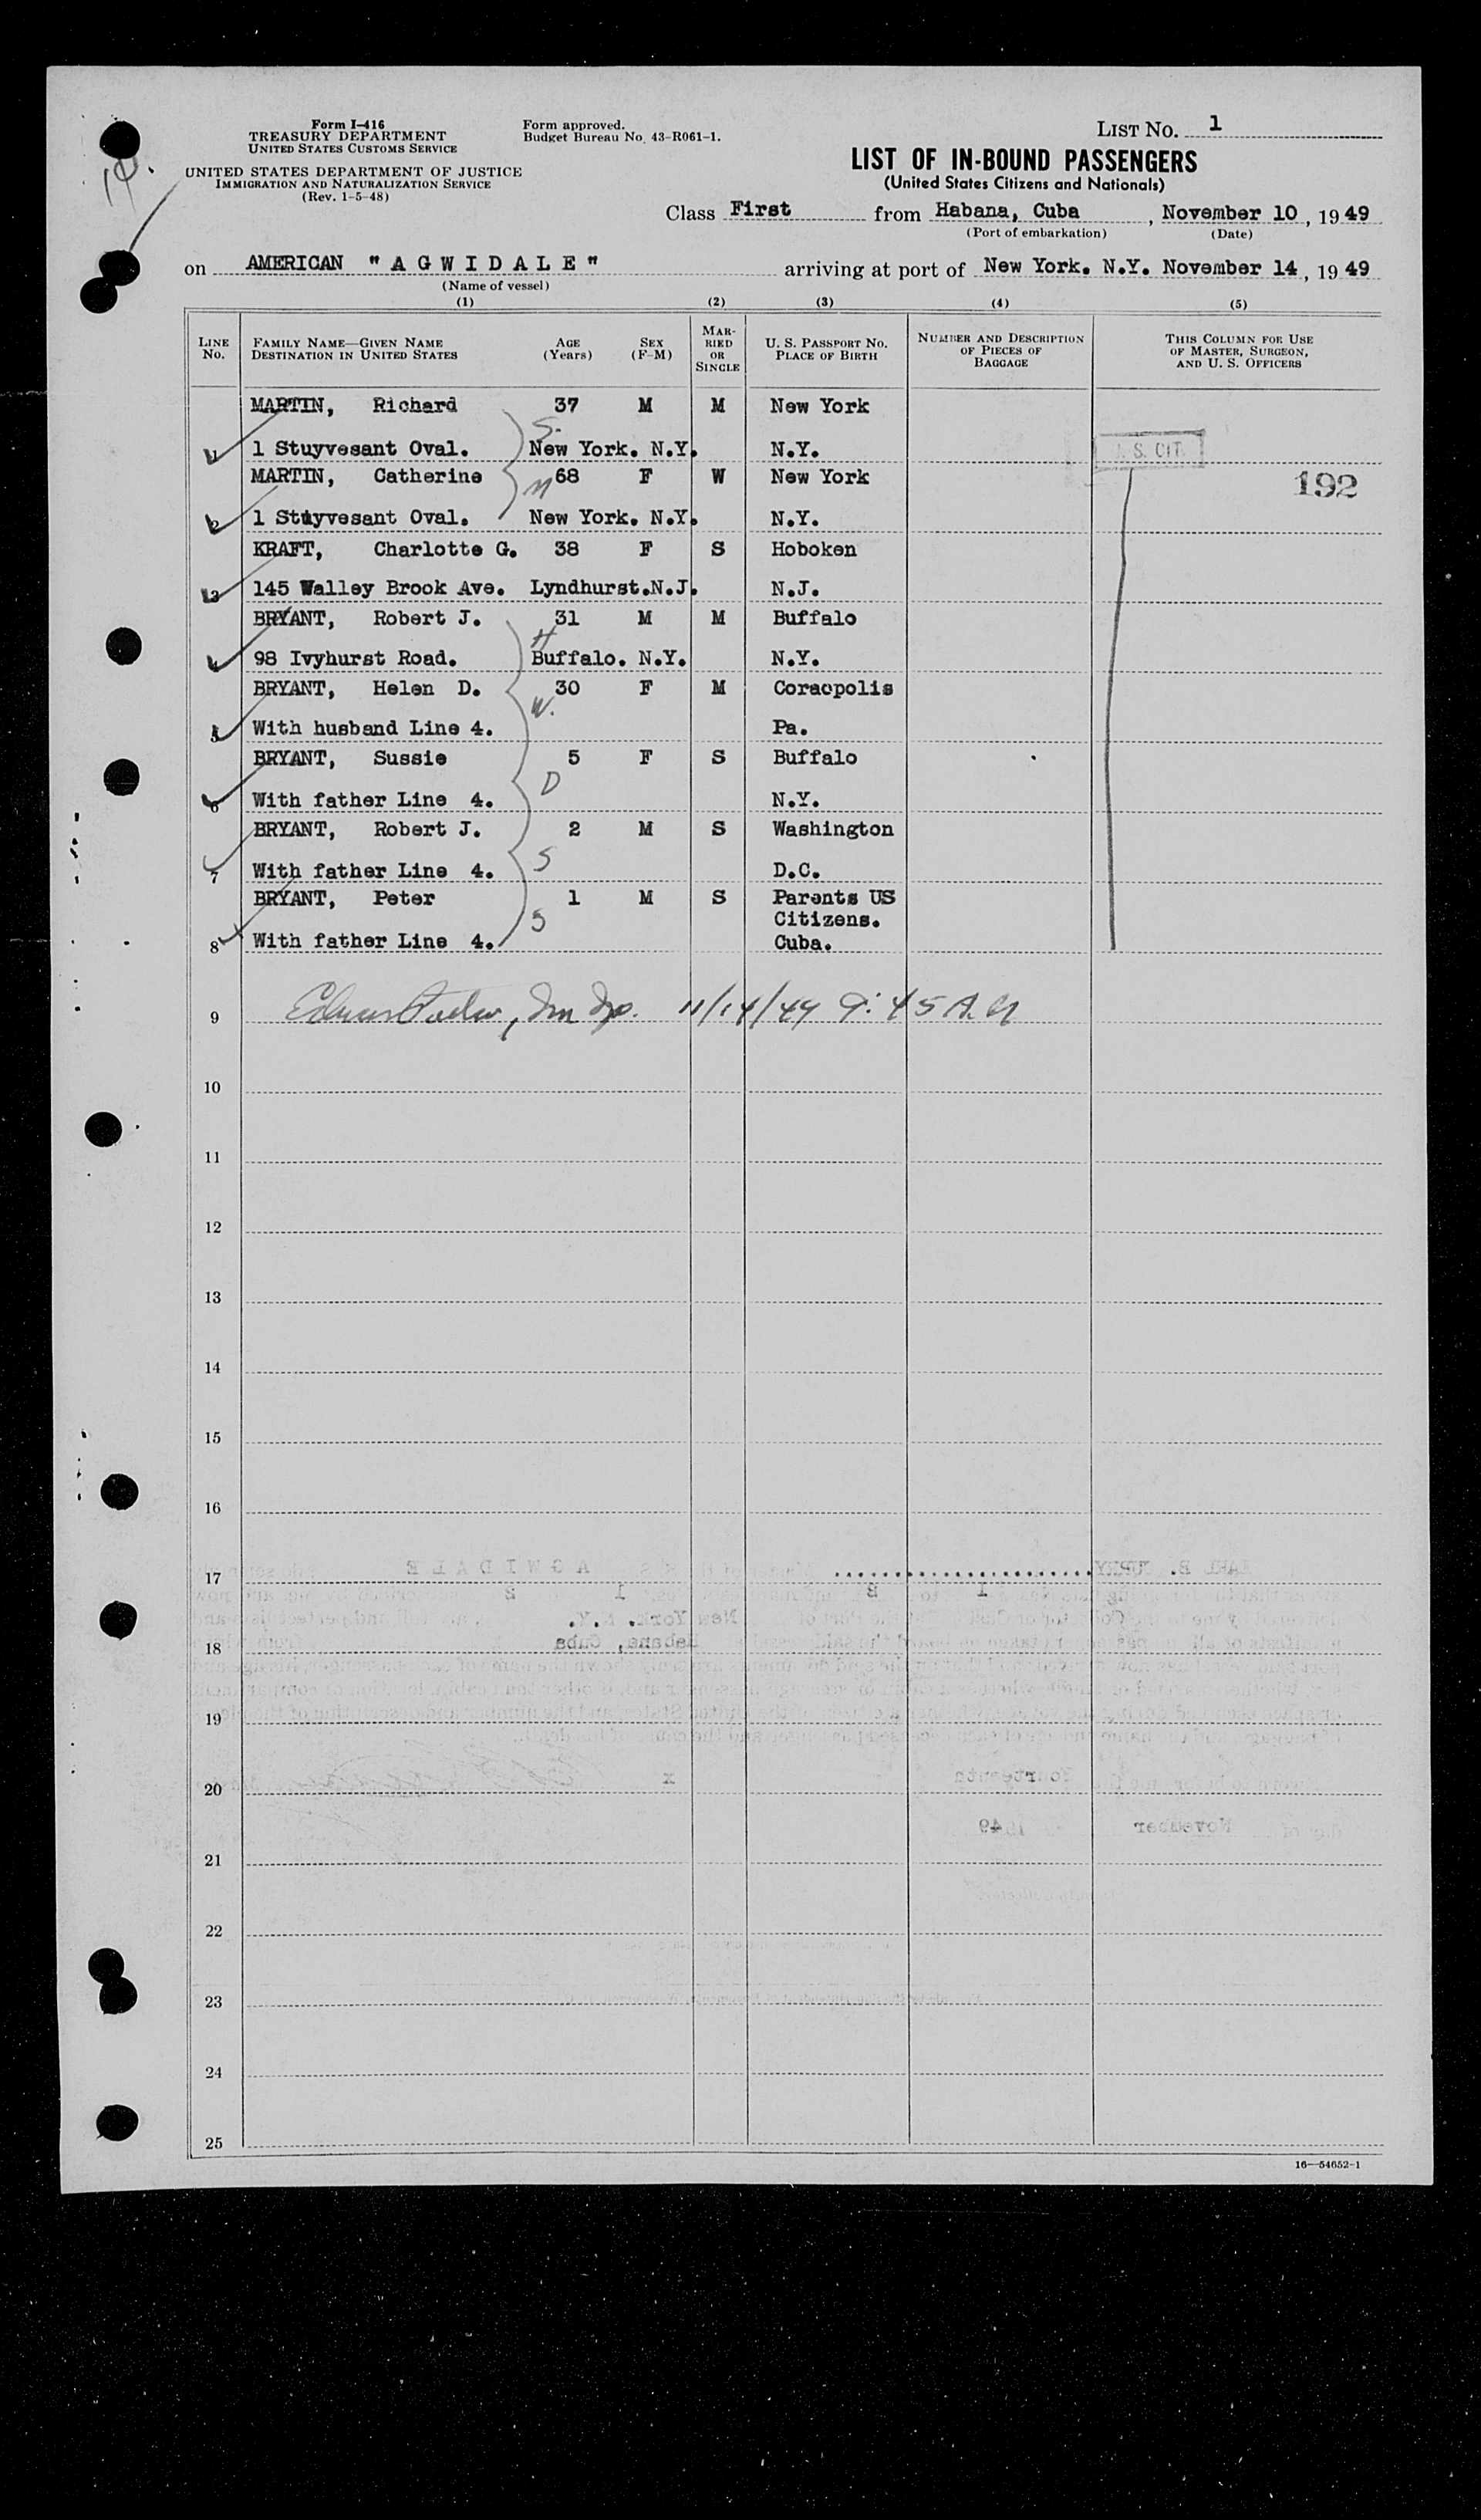 Form I-416
TREASURY DEPARTMENT
UNITED STATES CUSTOMS SERVICE
UNITED STATES DEPARTMENT OF JUSTICE
IMMIGRATION AND NATURALIZATION SERVICE
(Rev. 1-5-48)
Form approved.
Budget Bureau No. 43-R061-1.
LIST NO. 1
LIST OF IN-BOUND PASSENGERS
(United States Citizens and Nationals)
Class First from Habana, Cuba, November 10, 1949
(Port of embarkation) (Date)
on AMERICAN "AGWIDALE" arriving at port of New York. N.Y. November 14, 1949
(Name of vessel)
(1) (2) (3) (4) (5)
LINE NO. FAMILY NAME—GIVEN NAME DESTINATION IN UNITED STATES AGE (Years) SEX (F-M) MARRIED OR SINGLE U. S. PASSPORT NO. PLACE OF BIRTH NUMBER AND DESCRIPTION OF PIECES OF BAGGAGE THIS COLUMN FOR USE OF MASTER, SURGEON, AND U. S. OFFICERS
MARTIN, Richard 37 M M New York
S.
1 1 Stuyvesant Oval. New York. N.Y. N.Y. S. CIT.
MARTIN, Catherine M 68 F W New York 192
2 1 Stuyvesant Oval. New York. N.Y. N.Y.
KRAFT, Charlotte G. 38 F S Hoboken
3 145 Walley Brook Ave. Lyndhurst.N.J. N.J.
BRYANT, Robert J. 31 M M Buffalo
H
4 98 Ivyhurst Road. Buffalo. N.Y. N.Y.
BRYANT, Helen D. 30 F M Coraopolis
W.
5 With husband Line 4. Pa.
BRYANT, Sussie 5 F S Buffalo
D
6 With father Line 4. N.Y.
BRYANT, Robert J. 2 M S Washington
S
7 With father Line 4. D.C.
BRYANT, Peter 1 M S Parents US
S Citizens.
8 With father Line 4. Cuba.
9 11/14/49 9:45 A.M
10
11
12
13
14
15
16
17
18
19
20
21
22
23
24
25
16—54652-1